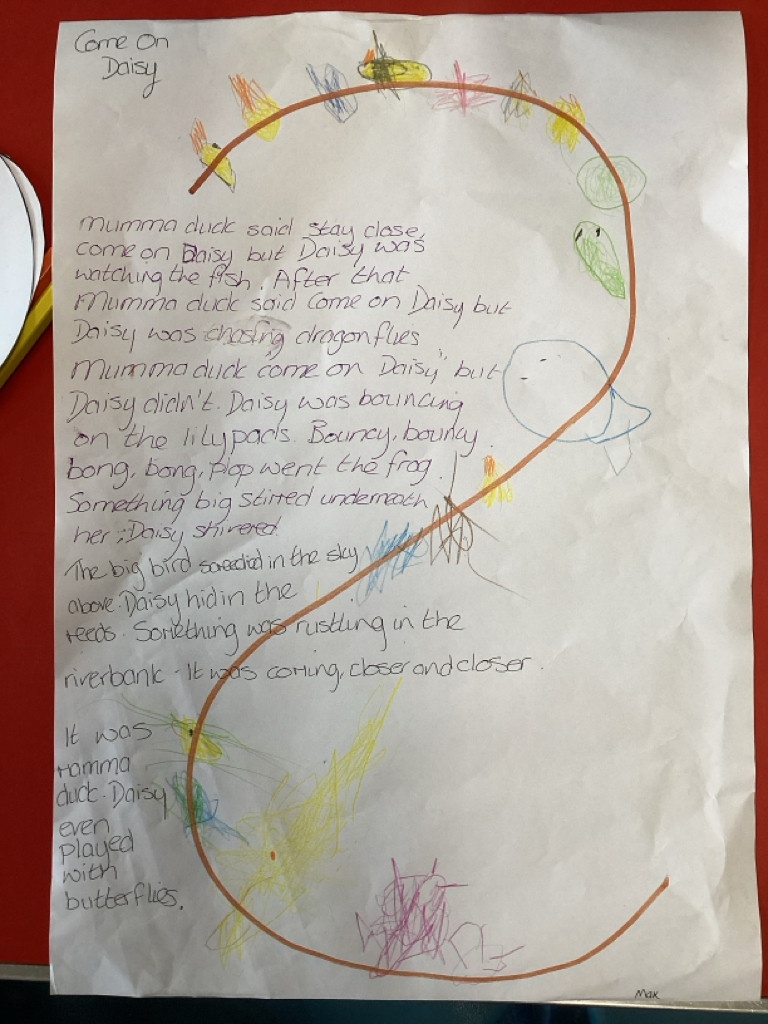 Come On
Daisy
Mumma duck said stay close,
come on Daisy but Daisy was
watching the fish. After that
Mumma duck said come on Daisy but
Daisy was chasing dragonflies
Mumma duck "come on Daisy" but
Daisy didn't. Daisy was bouncing
on the lilypads. Bouncy, bouncy
bong, bong, plop went the frog.
Something big stirred underneath
her, Daisy shivered
The big bird in the sky
above. Daisy hid in the
reeds. Something was rustling in the
riverbank. It was coming, closer and closer.
It was
mamma
duck. Daisy
even
played
with
butterflies.
Max